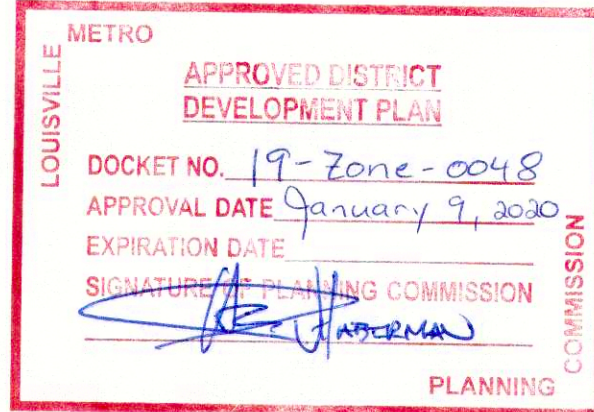 LOUISVILLE
METRO
APPROVED DISTRICT
DEVELOPMENT PLAN
DOCKET NO. 19-Zone-0048
APPROVAL DATE January 9, 2020
EXPIRATION DATE
SIGNATURE OF PLANNING COMMISSION
HABERMAN
PLANNING
COMMISSION